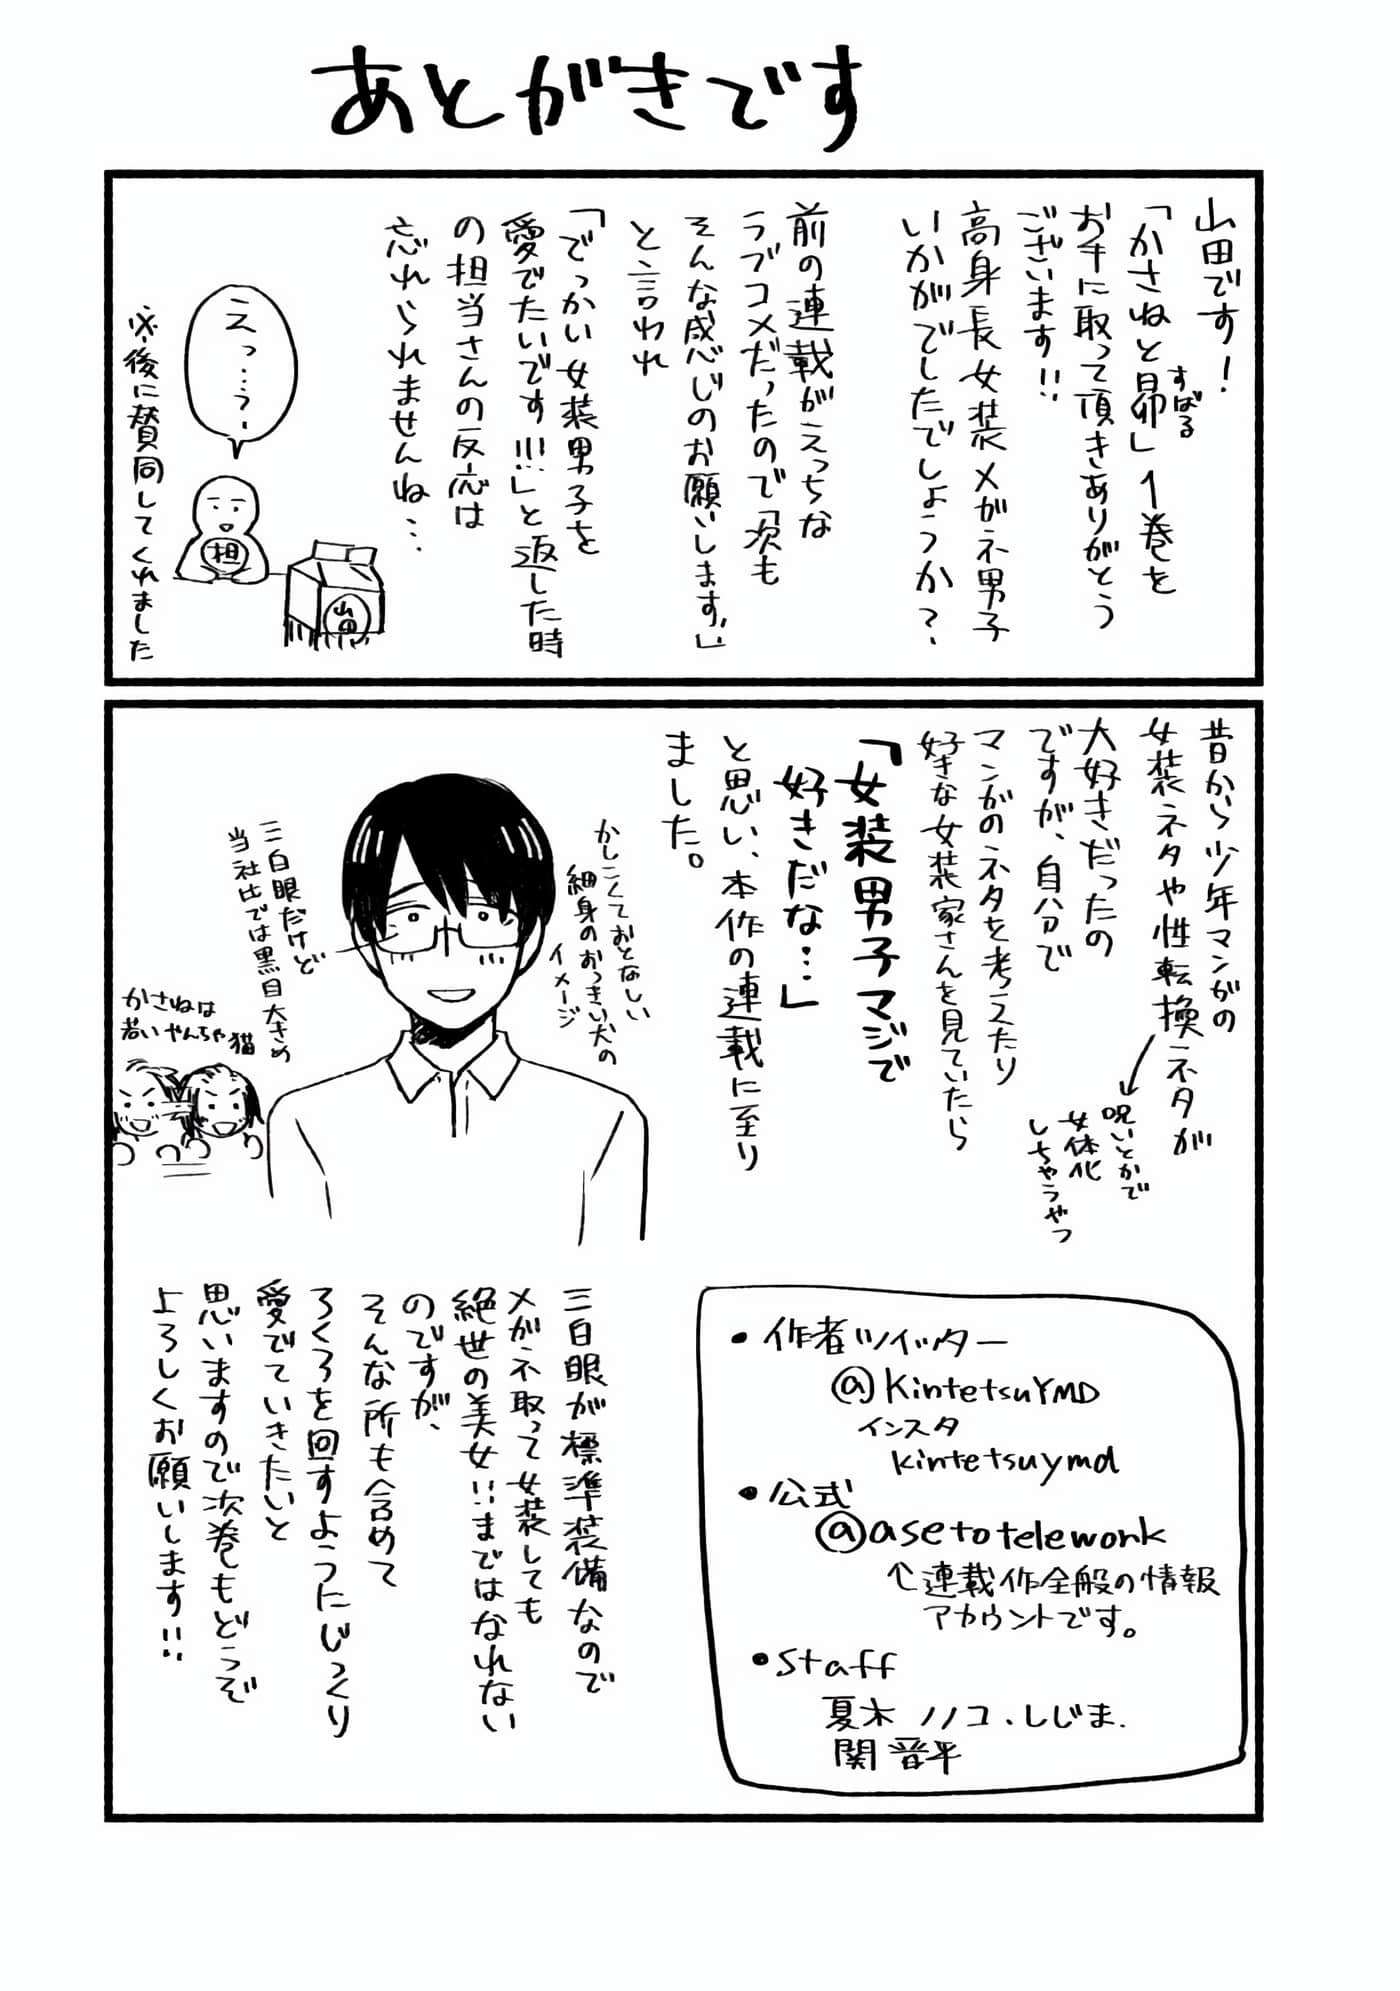 あとがきです
山田です!
「かさねと昴」1巻を
すばる
お手に取って頂きありがとう
ございます!!
高身長女装メガネ男子
いかがでしたでしょうか?
前の連載がえっちな
ラブコメだったので「次も
そんな感じのお願いします」
と言われ
「でっかい女装男子を
愛でたいです!!!」と返した時
の担当さんの反応は
忘れられませんね…
えっ…?
担
山田
※後に賛同してくれました
昔から少年マンガの
女装ネタや性転換ネタが
大好きだったの
ですが、自分で
マンガのネタを考えたり
好きな女装家さんを見ていたら
呪いとかで
女体化
しちゃうやつ
「女装男子マジで
好きだな…」
と思い、本作の連載に至り
ました。
かしこくておとなしい
細身のおっきい犬の
イメージ
三白眼だけど
当社比では黒目大きめ
かさねは
若いやんちゃ猫
三白眼が標準装備なので
メガネ取って女装しても
絶世の美女!!まではなれない
のですが、
そんな所も含めて
ろくろを回すようにじっくり
愛でていきたいと
思いますので次巻もどうぞ
よろしくお願いします!!
• 作者ツイッター
@KintetsuYMD
インスタ
kintetsuymd
• 公式
@asetotelework
↑連載作全般の情報
アカウントです。
• staff
夏木ノノコ、しじま、
関晋平